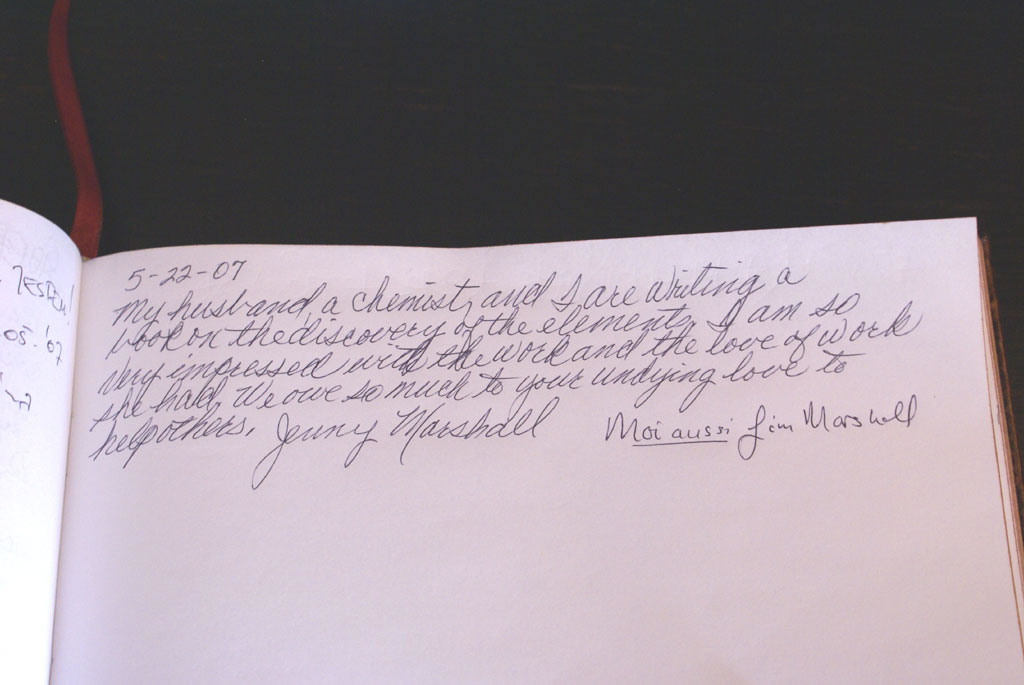 JESTEM!
05.'07
5-22-07
My husband, a chemist, and I, are writing a
book on the discovery of the elements. I am so
very impressed with the work and the love of work
she had. We owe so much to your undying love to
help others. Jenny Marshall
Moi aussi Jim Marshall